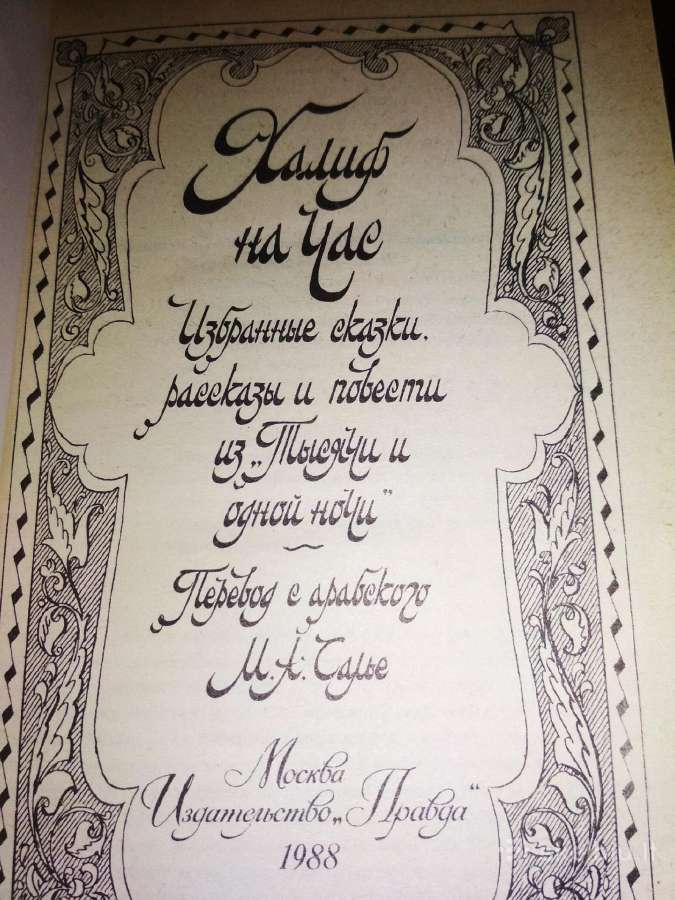 Халиф
на час
Избранные сказки,
рассказы и повести
из „Тысячи и
одной ночи“
Перевод с арабского
М. А. Салье
Москва
Издательство „Правда“
1988